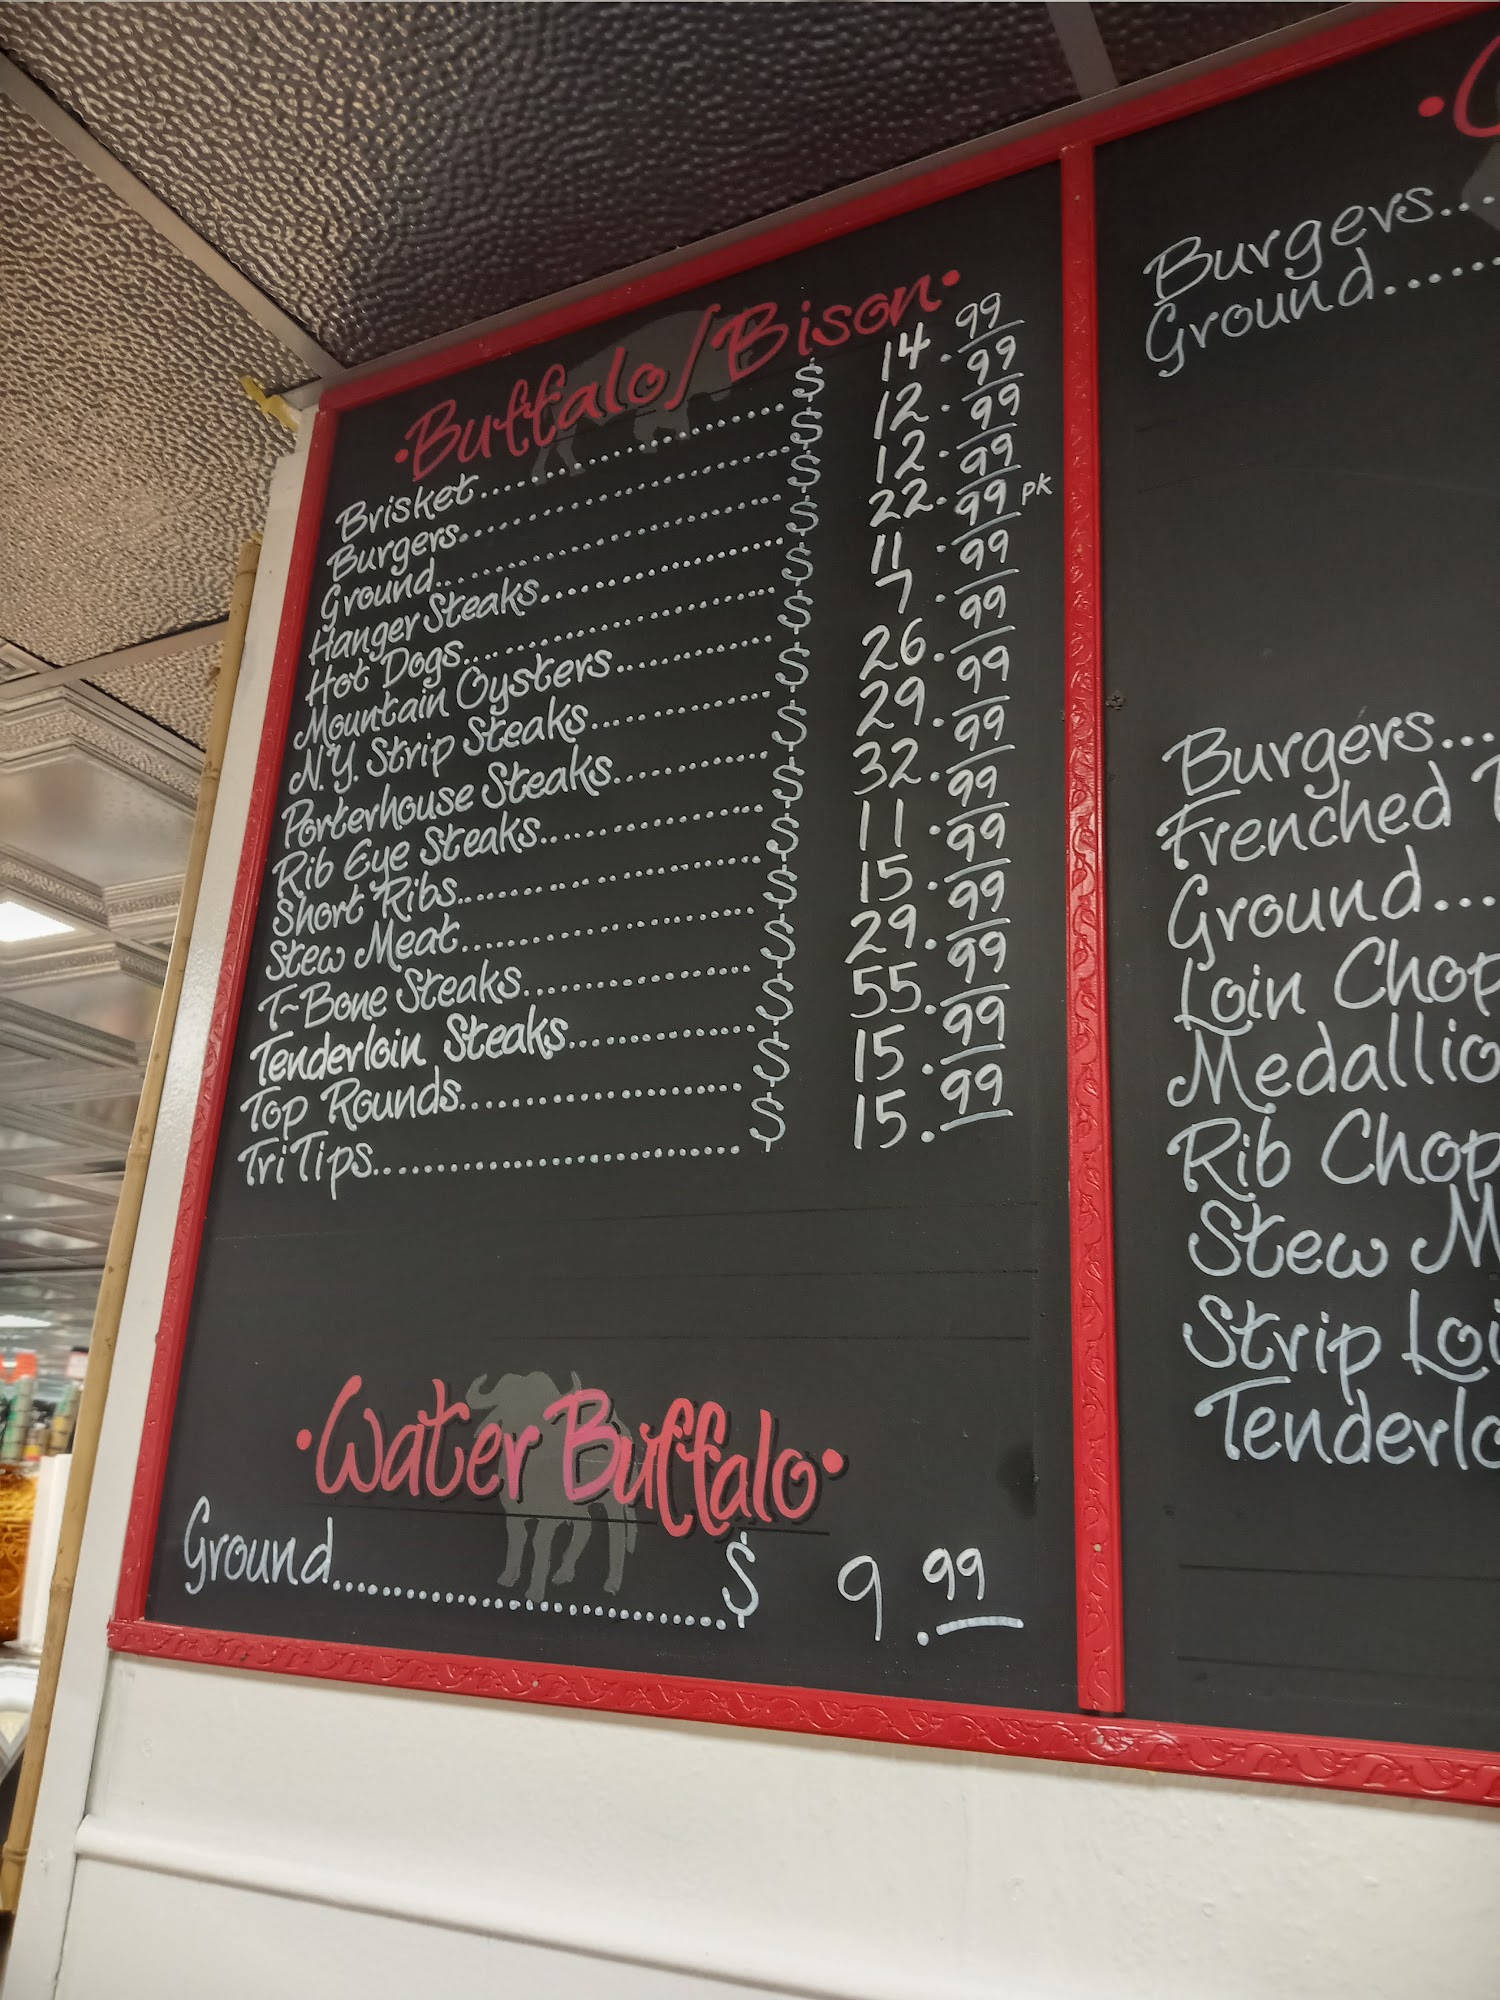 •Buffalo/Bison•
Brisket.....$ 14.99
Burgers.....$ 12.99
Ground.....$ 12.99
Hanger Steaks.....$ 22.99
Hot Dogs.....$ 11.99 pk
Mountain Oysters.....$ 7.99
N.Y. Strip Steaks.....$ 26.99
Porterhouse Steaks.....$ 29.99
Rib Eye Steaks.....$ 32.99
Short Ribs.....$ 11.99
Stew Meat.....$ 15.99
T-Bone Steaks.....$ 29.99
Tenderloin Steaks.....$ 55.99
Top Rounds.....$ 15.99
Tri Tips.....$ 15.99
•Water Buffalo•
Ground.....$ 9.99
Burgers...
Ground......
Burgers...
Frenched
Ground...
Loin Chop
Medallio
Rib Chop
Stew M
Strip Loi
Tenderlo